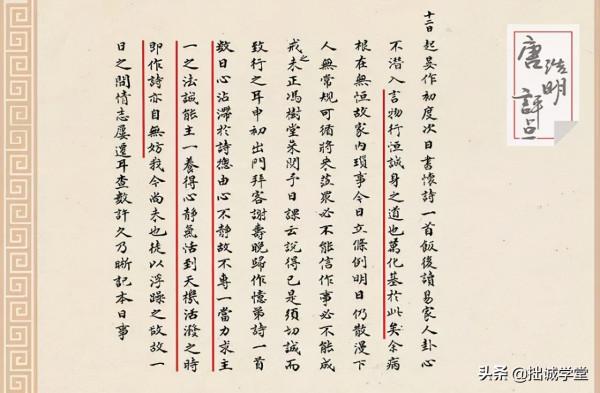 十二日
起晏作初度次日書懷詩一首飯後讀易家人卦心
不潛入言物行恆誠身之道也萬化基於此矣余病
根在無恆故家內瑣事今日立條例明日仍散漫下
人無常規可循將來蒞眾必不能信作事必不能成
戒之未正馮樹堂來閱予日課云說得已是須切誠而
致行之耳申初出門拜客謝壽晚歸作憶弟詩一首
數日心沾滯於詩總由心不靜故不專一當力求主
一之法誠能主一養得心靜氣恬到天機活潑之時
即作詩亦自無妨我今尚未也徒以浮躁之故故一
日之間情志屢遷耳查數許久乃晰記本日事
唐浩明
評點
头条 @拙诚学堂